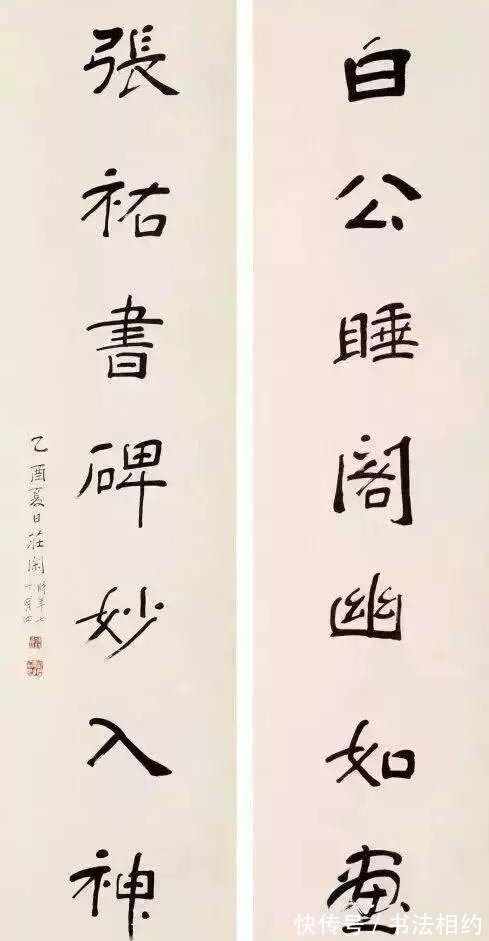 白公睡阁幽如画
張祐書碑妙入神
乙酉夏日莊閑時年七十有四
快传号/书法相约